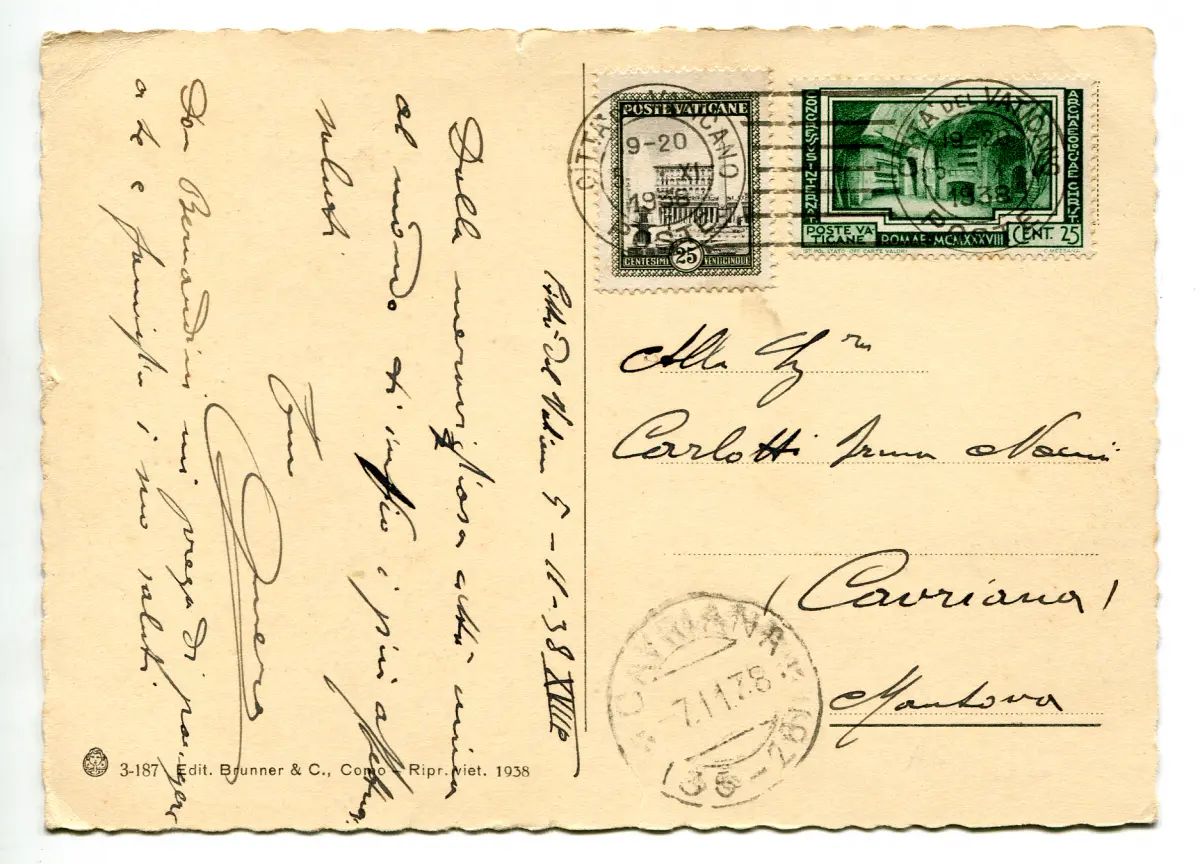 Città del Vaticano 5-11-38 XVIIº
Dalla meravigliosa città unica
al mondo ti invio i più affettuosi
saluti
Tuo
Don Bernardini mi prega di porgere
a te e famiglia i suoi saluti.
3-187 Edit. Brunner & C., Como - Ripr. viet. 1938
POSTE VATICANE
CENTESIMI 25 VENTICINQUE
CITTA' DEL VATICANO
9-20
XI
1938
POSTE
CONGRESSUS INTERNAT
ARCHAEOLOGIAE CHRIST
POSTE VA
TICANE ROMAE·MCMXXXVIII CENT. 25
IST. POL. STATO OFF. CARTE VALORI MEZZANA
CITTA' DEL VATICANO
19-20
1938
POSTE
Alla Sig.ra
Carlotti Irma
Cavriana
(Mantova)
CAVRIANA
7.11.38